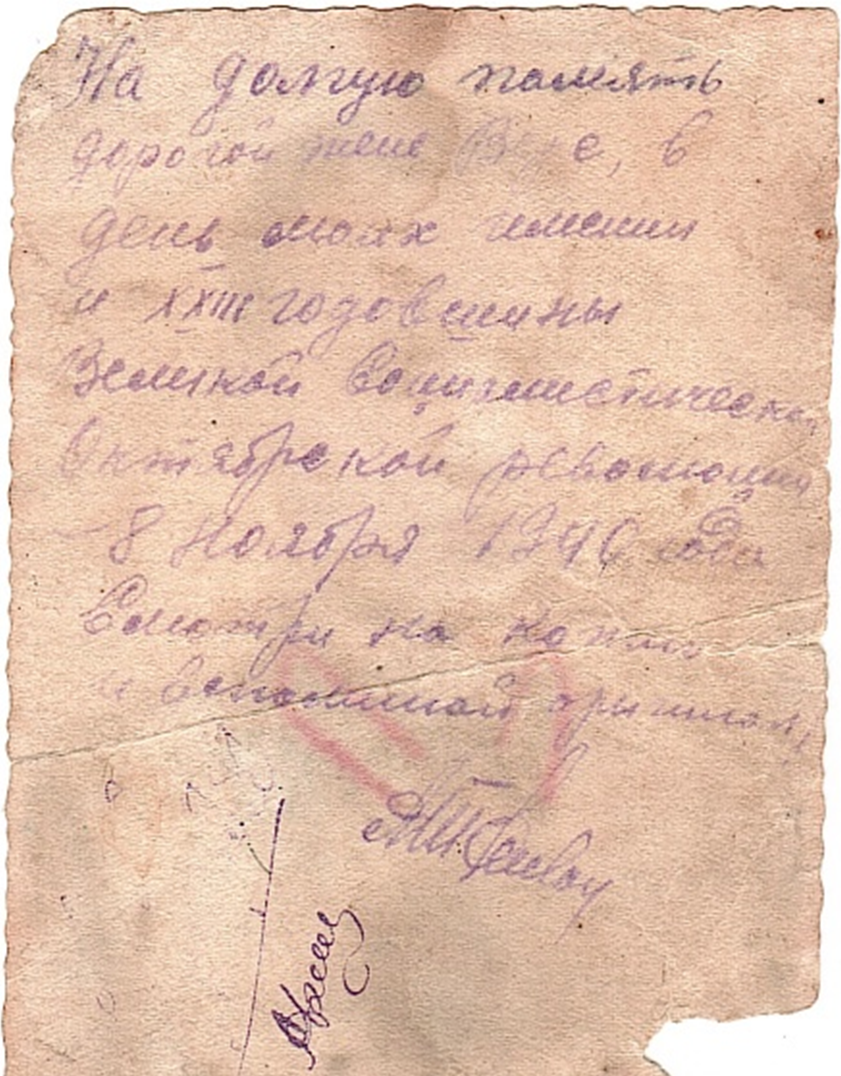 На долгую память
дорогой жене Вере, в
день моих имянин
и XXIII годовщины
Великой Социалистической
Октябрьской революции
8 ноября 1940 года
Смотри на копию
и вспоминай оригинал.